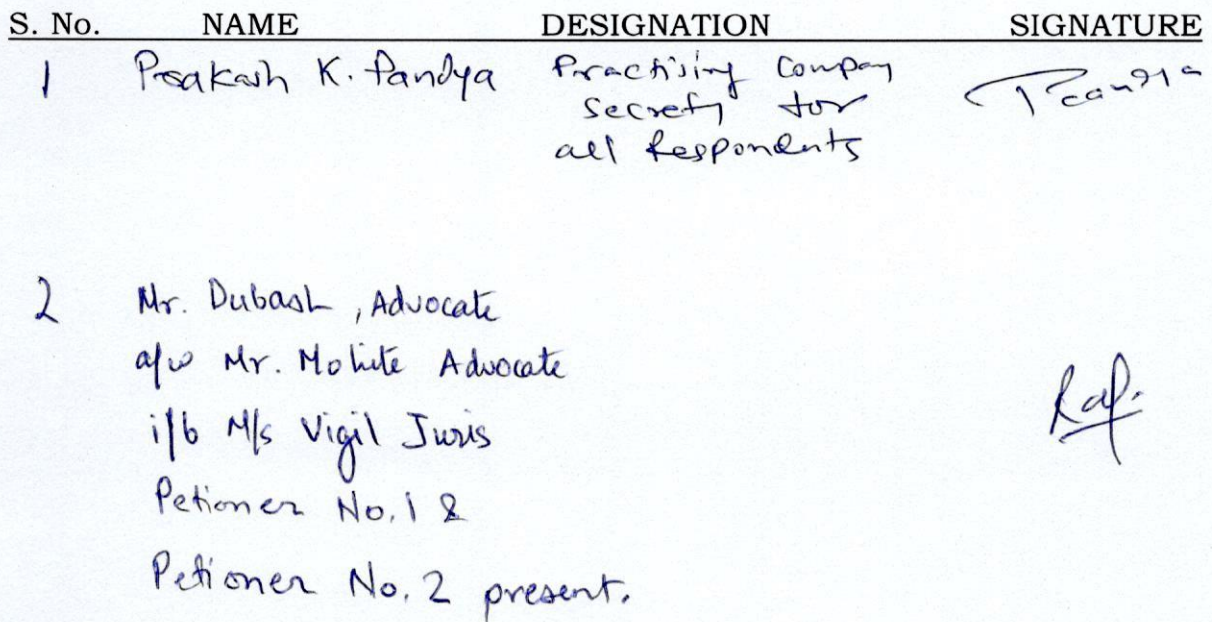 S. No. NAME DESIGNATION SIGNATURE
1 Prakash K. Pandya Practising Company
Secrety for
all Respondents
2 Mr. Dubash, Advocate
a/w Mr. Mohite Advocate
i/b M/s Vigil Juris
Petioner No. 1 &
Petioner No. 2 present.